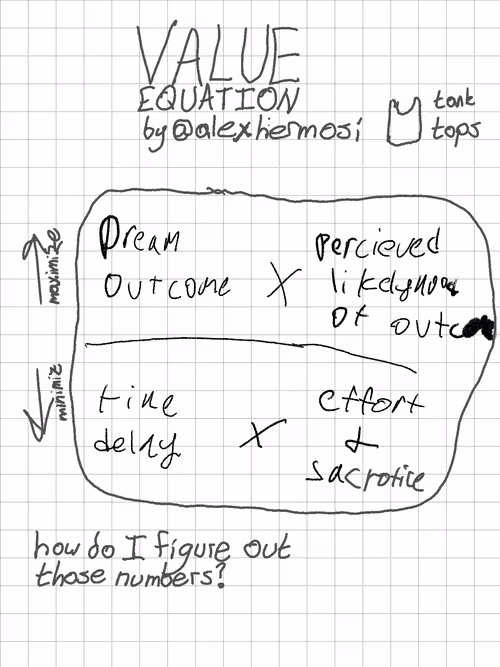 VALUE
EQUATION
by @alexhermosi
tank
tops
maximize
Dream
outcome X
percieved
likelyhood
of outcom
minimiz
time
delay X
effort
&
sacrofice
how do I figure out
those numbers?